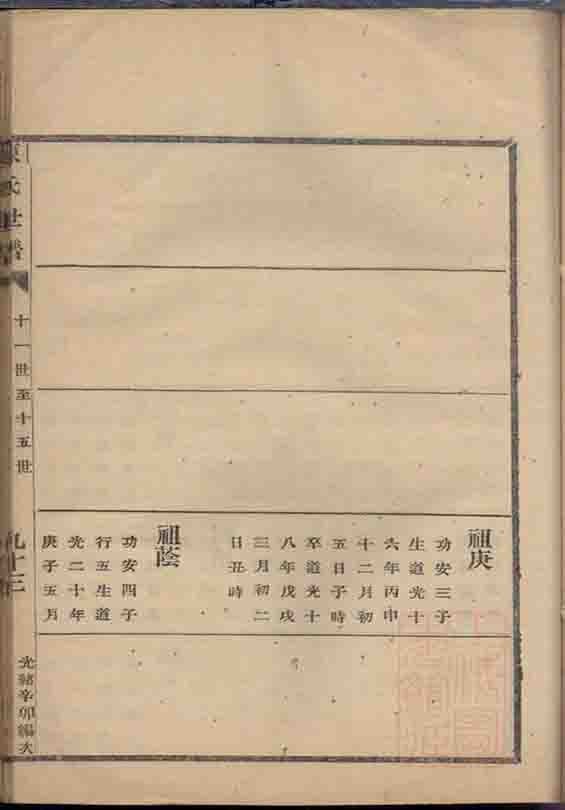 祖庚
功安三子
生道光十
六年丙申
十二月初
五日子時
卒道光十
八年戊戌
三月初二
日丑時
祖蔭
功安四子
行五生道
光二十年
庚子五月
陳氏世譜
十一世至十五世
九十三
光緒辛卯編次